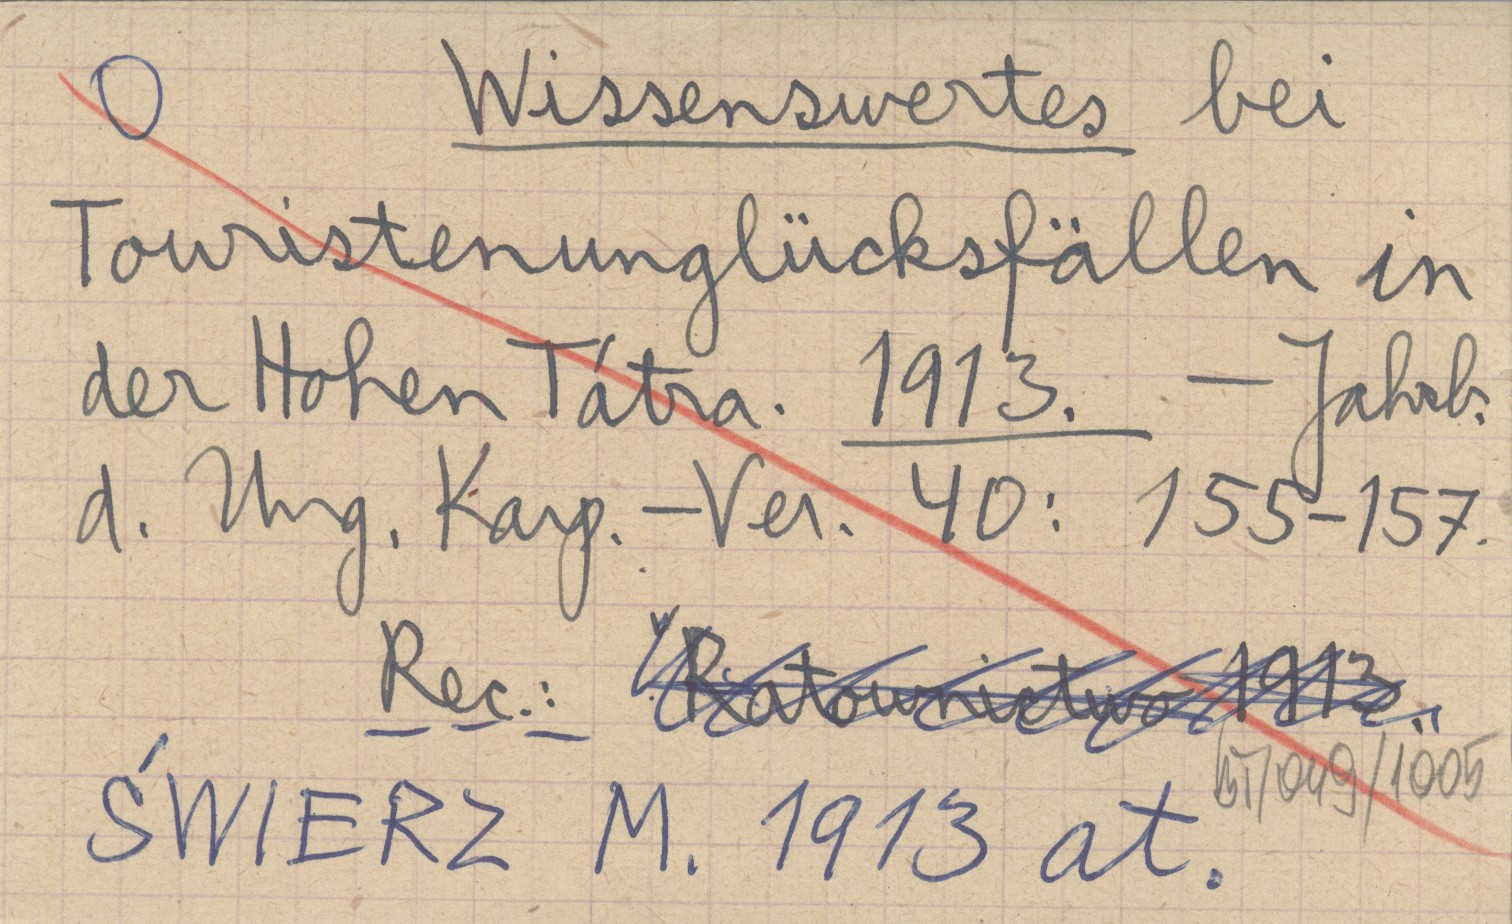 O Wissenswertes bei
Touristenunglücksfällen in
der Hohen Tátra. 1913. — Jahrb.
d. Ung. Karp.-Ver. 40: 155-157.
Rec.: Ratownictwo 1913.
BT/049/1005
ŚWIERZ M. 1913 at.